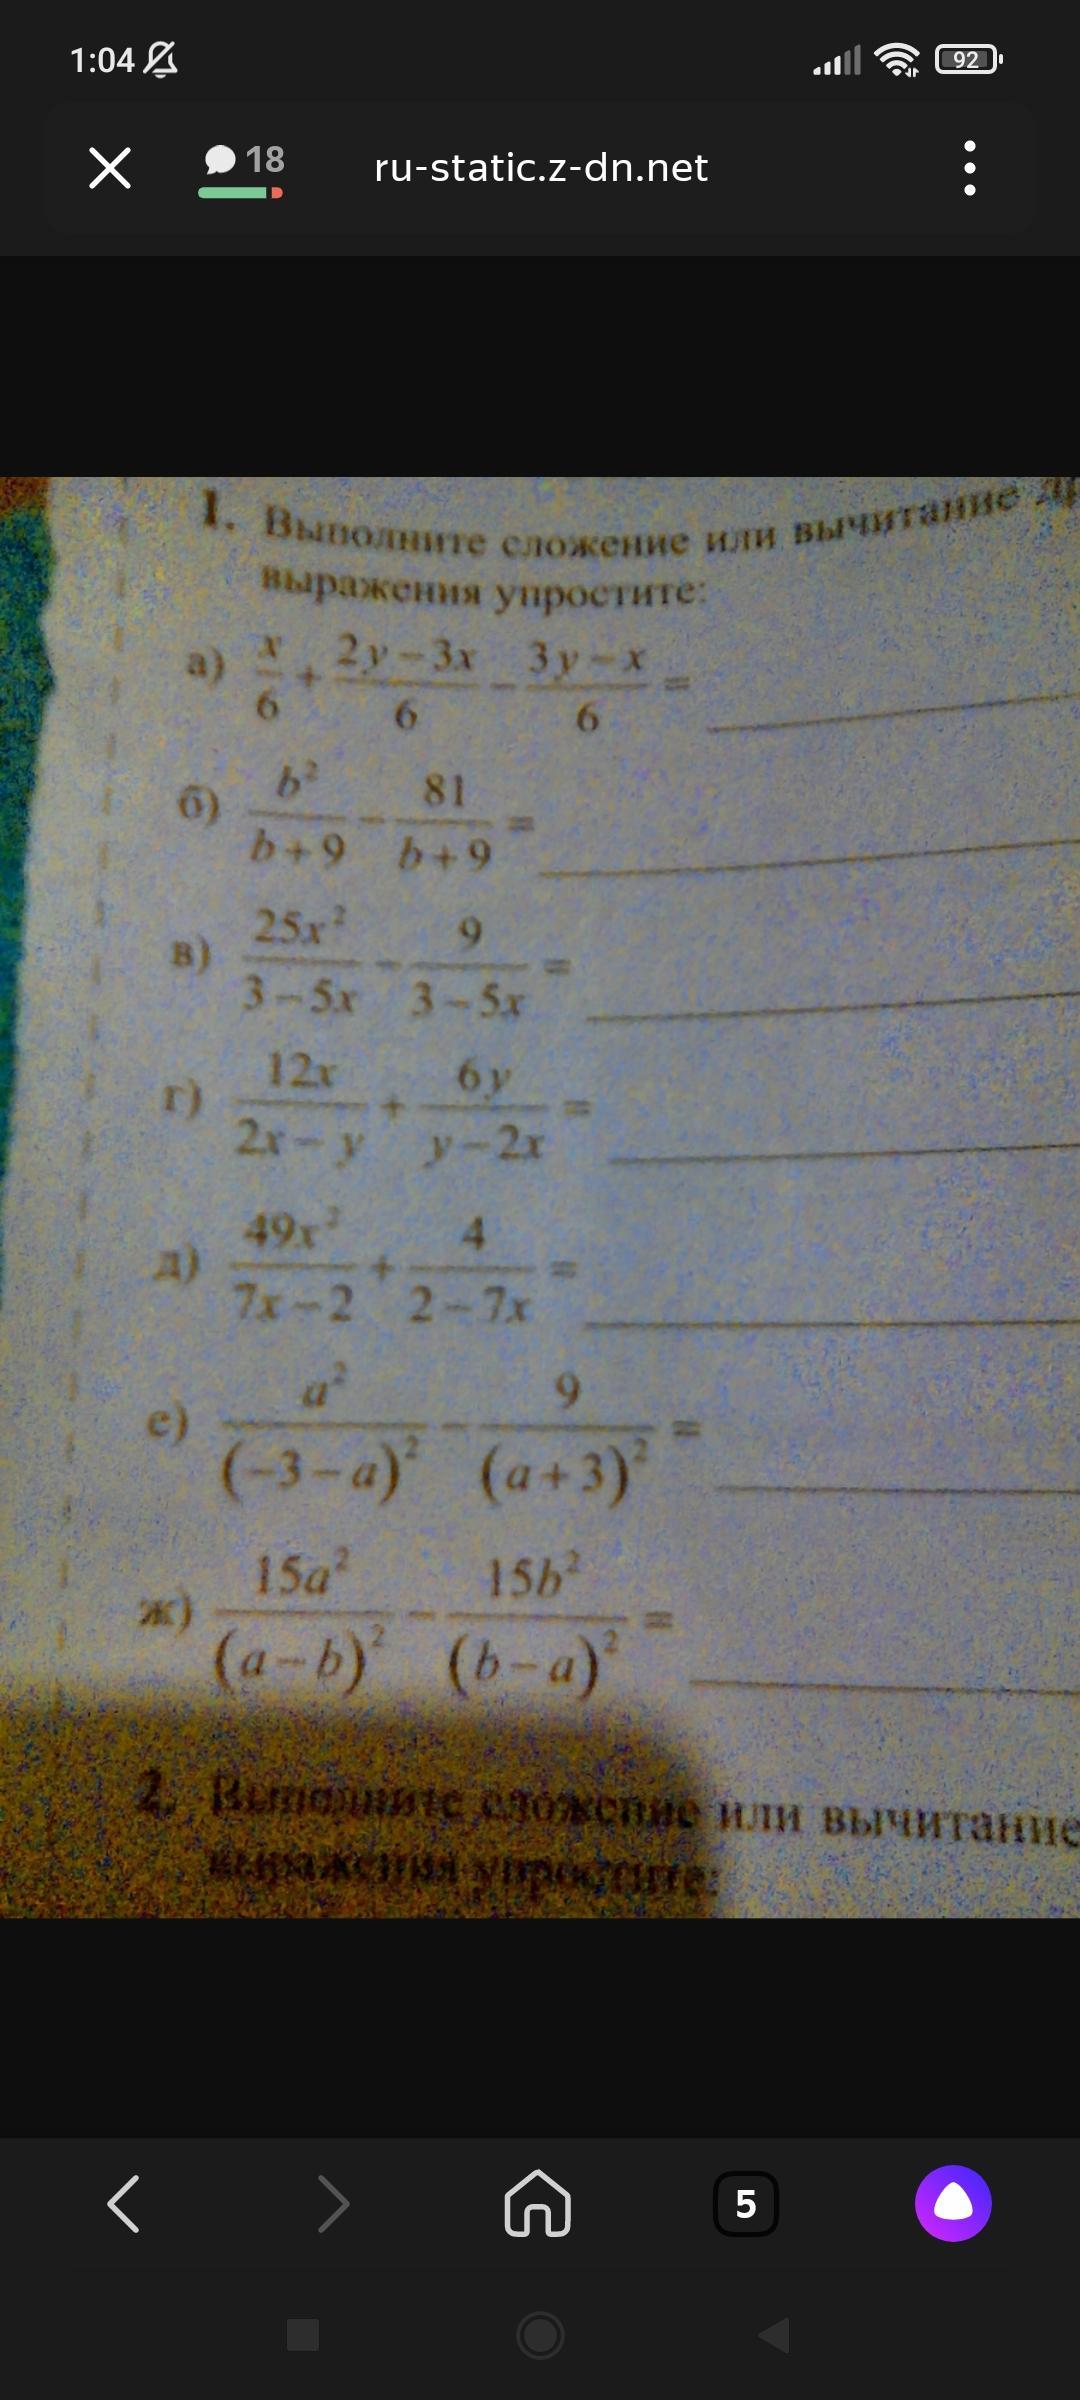 1:04 92
18 ru-static.z-dn.net
1. Выполните сложение или вычитание
выражения упростите:
а) x/6 + (2y − 3x)/6 − (3y − x)/6 =
б) b²/(b + 9) − 81/(b + 9) =
в) 25x²/(3 − 5x) − 9/(3 − 5x) =
г) 12x/(2x − y) + 6y/(y − 2x) =
д) 49x²/(7x − 2) + 4/(2 − 7x) =
е) a²/(−3 − a)² − 9/(a + 3)² =
ж) 15a²/(a − b)² − 15b²/(b − a)² =
2. Выполните сложение или вычитание
выражения упростите:
5